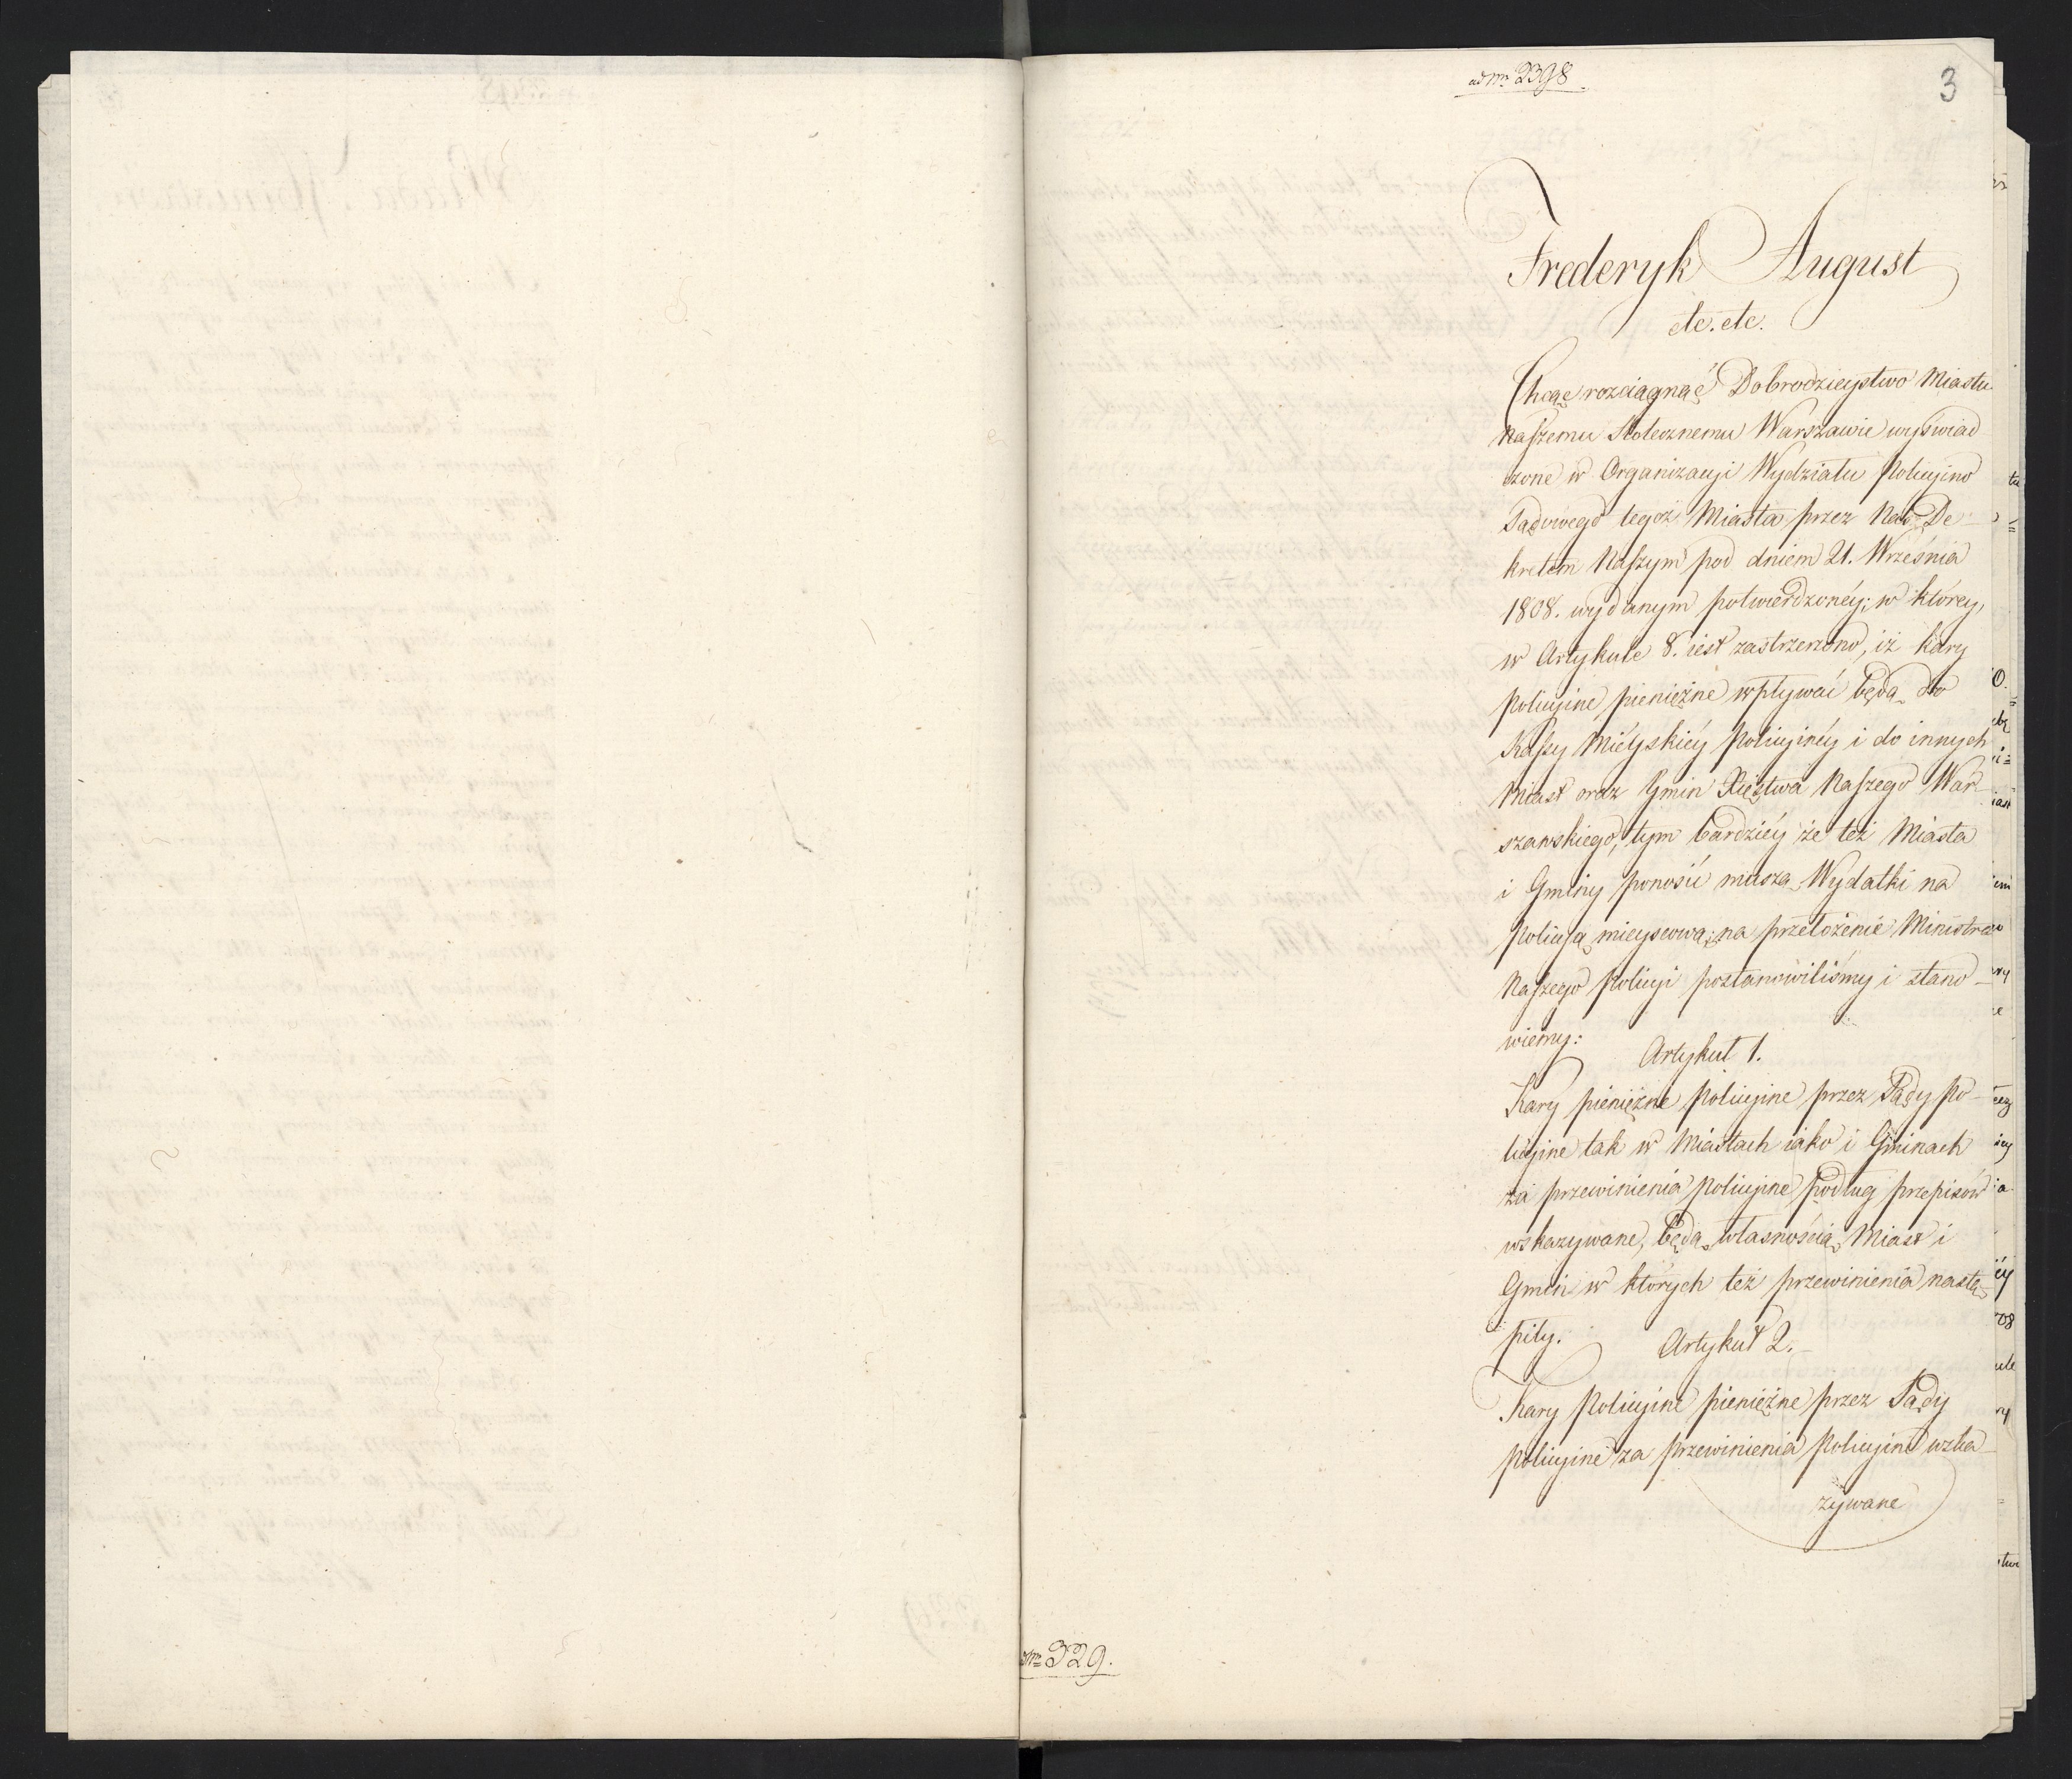 ad Nro 2398.
3
Frederyk August
etc. etc.
Chcąc rozciągnąć Dobrodzieystwo Miastu
Naszemu Stołecznemu Warszawie wyświad
czone w Organizacyi Wydziału Policyino
Sądowego tegoż Miasta przez Nas De-
kretem Naszym pod dniem 21. Września
1808. wydanym potwierdzonéy; w którey,
w Artykule 8. iest zastrzeżono, iż kary
Policyine pieniężne wpływać będą do
Kassy Miéyskiéy Policyinéy i do innych
Miast oraz Gmin Xięstwa Naszego War-
szawskiego, tym bardziéy że też Miasta
i Gminy ponosić muszą Wydatki na
Policyą mieyscową; na przełożenie Ministra
Naszego Policyi postanowiliśmy i stano-
wiemy:
Artykuł 1.
Kary pieniężne Policyine przez Sądy Po-
licyine tak w Miastach iako i Gminach
za przewinienia Policyine podług przepisów
wskazywane, będą własnością Miast i
Gmin w których też przewinienia nastą-
piły.
Artykuł 2.
Kary Policyine pieniężne przez Sądy
Policyine za przewinienia Policyine wska-
zywane
Nro 329.